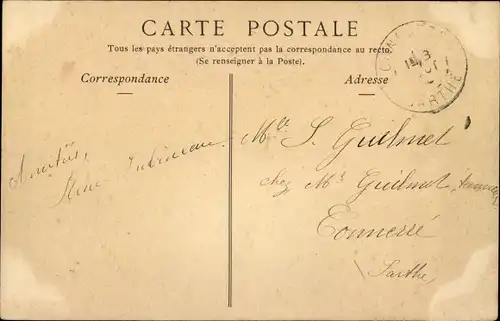 CARTE POSTALE
Tous les pays étrangers n'acceptent pas la correspondance au recto.
(Se renseigner à la Poste).
Correspondance
Adresse
SARTHE
Amitiés,
Mlle S. Guilmet
chez Mr Guilmet,
Connerré
Sarthe